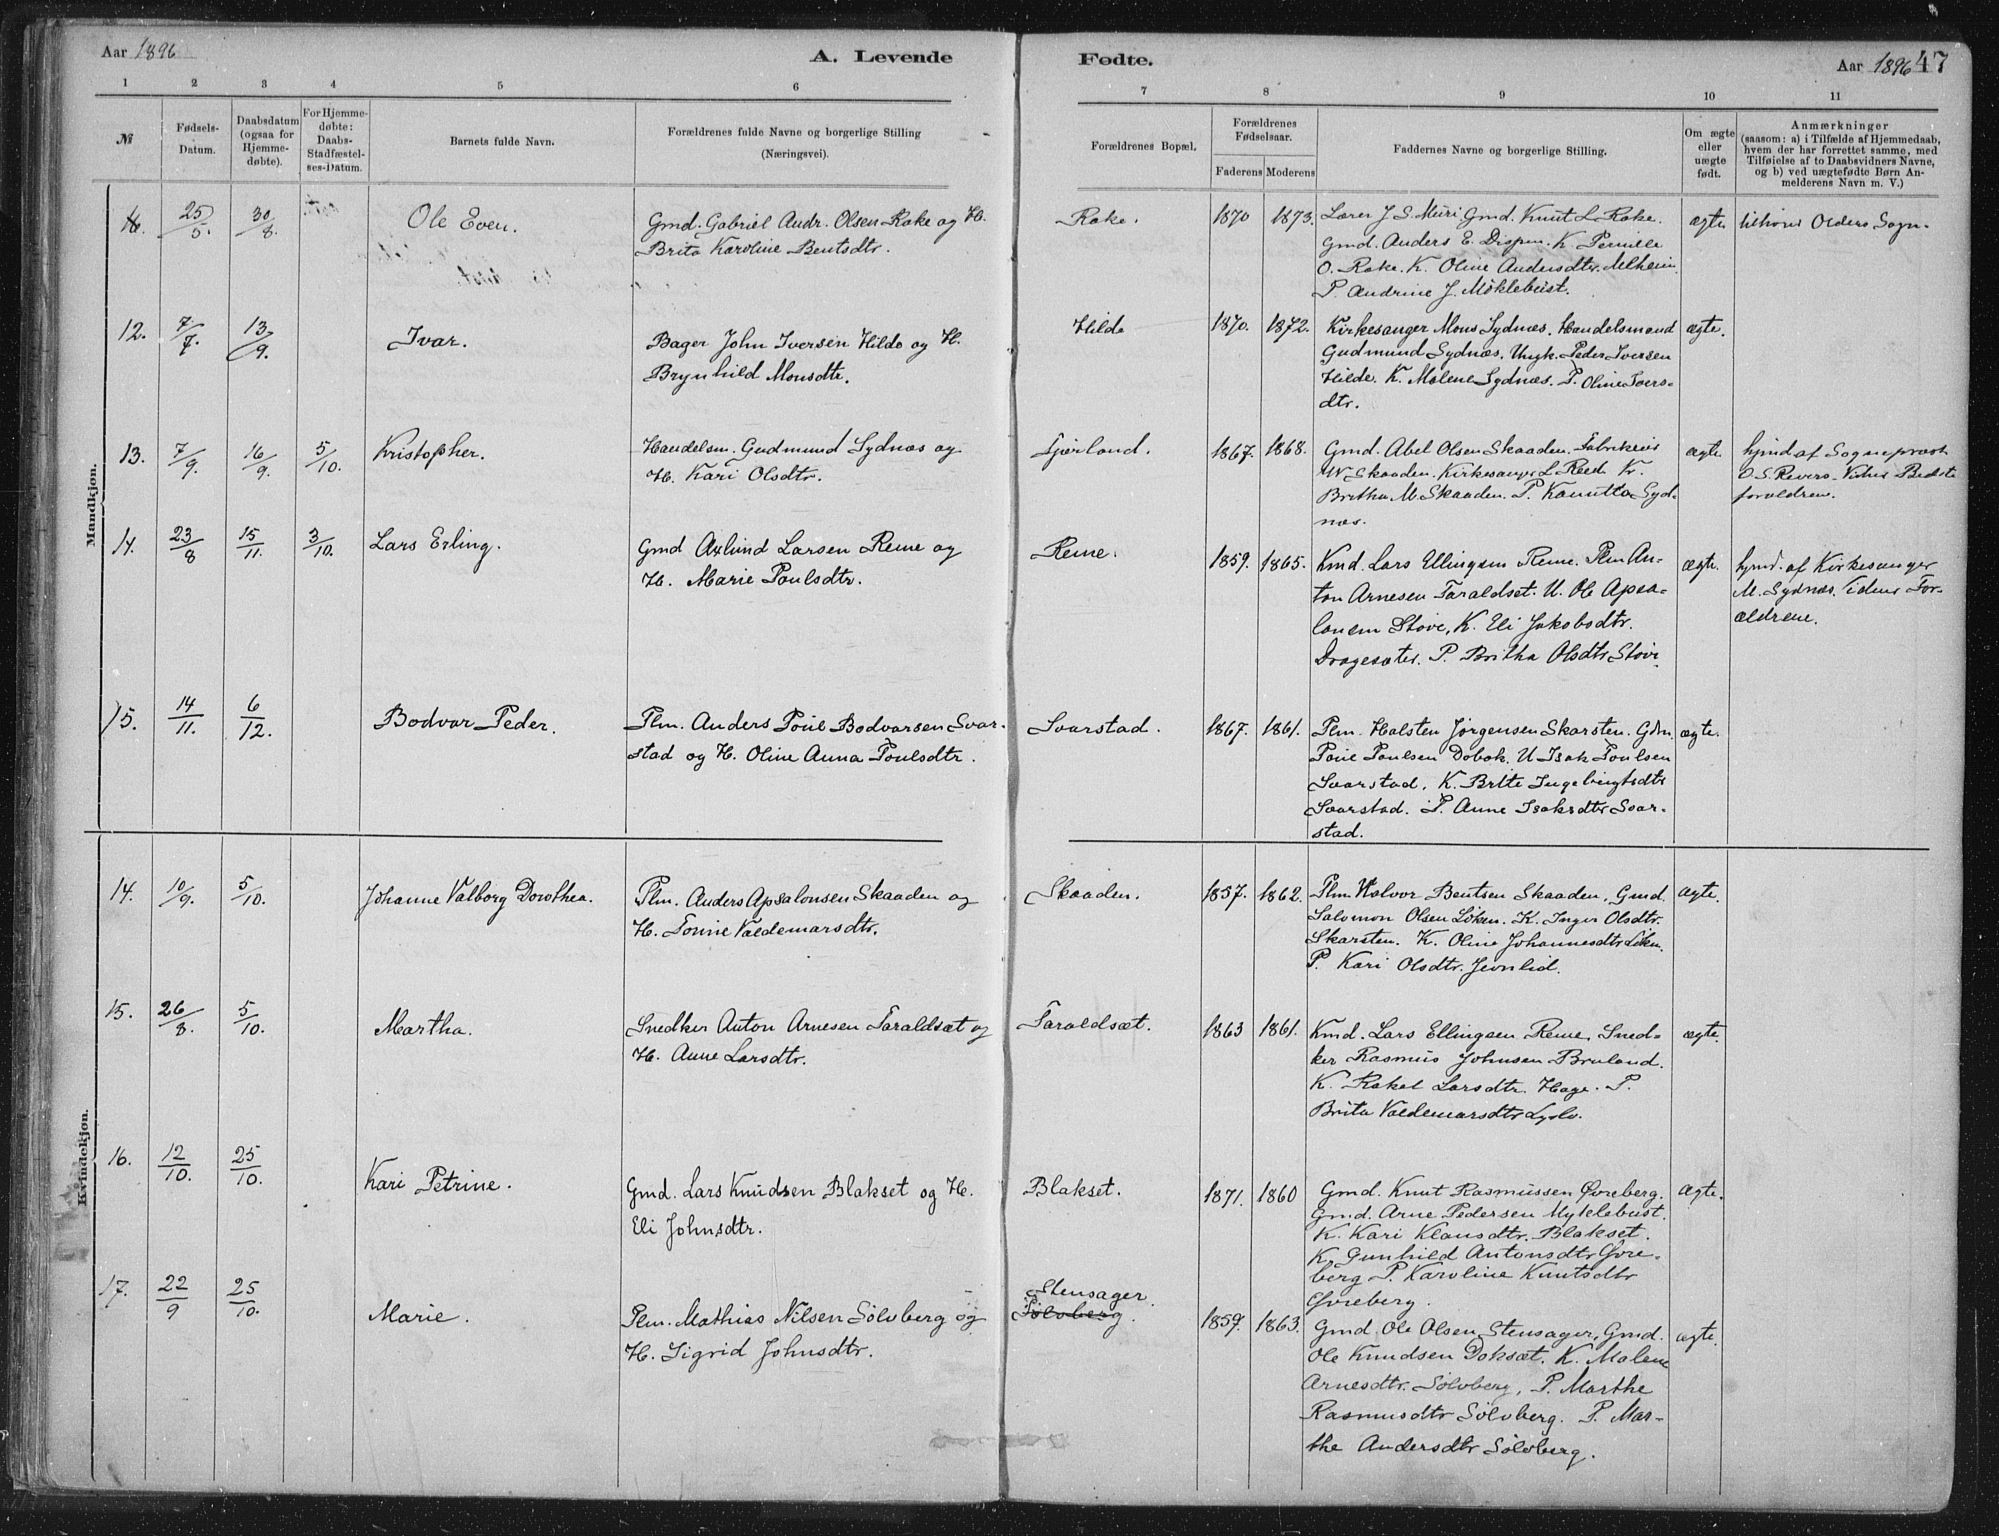 Aar 1896
A. Levende
Fødte.
Aar 1896 47
1 2 3 4 5 6 7 8 9 10 11
№
Fødsels-
Datum.
Daabsdatum
(ogsaa for
Hjemme-
døbte).
For Hjemme-
døbte:
Daabs-
Stadfæstel-
ses-Datum.
Barnets fulde Navn.
Forældrenes fulde Navne og borgerlige Stilling
(Næringsvei).
Forældrenes Bopæl.
Forældrenes
Fødselsaar.
Faderens Moderens
Faddernes Navne og borgerlige Stilling.
Om ægte
eller
uægte
født.
Anmærkninger
(saasom: a) i Tilfælde af Hjemmedaab,
hvem der har forrettet samme, med
Tilføielse af to Daabsvidners Navne,
og b) ved uægtefødte Børn An-
melderens Navn m. V.)
Mandkjøn.
25/5 30/8
Ole Even.
Gmd. Gabriel Andr. Olsen Rake og H.
Brita Karoline Bentsdtr.
Rake.
1870 1873.
Lærer J. S. Muri Gmd. Knut L. Rake.
Gmd. Anders E. Dispen. K. Pernille
O. Rake. K. Oline Andersdtr. Melheim
P. Andrine J. Møklebust.
ægte
tilhører Oldens Sogn.
12. 7/7 13/9
Ivar.
Bager John Iversen Hilde og H.
Brynhild Monsdtr.
Hilde
1870. 1872.
Kirkesanger Mons Sydnæs. Handelsmand
Gudmund Sydnæs. Ungk. Peder Iversen
Hilde. K. Malene Sydnæs. P. Oline Ivers-
dtr.
ægte.
13. 7/9 16/9 5/10.
Kristopher.
Handelsm. Gudmund Sydnæs og
H. Kari Olsdtr.
1867. 1868.
Gmd. Abel Olsen Skaaden. Fabrikeier
W. Skaaden. Kirkesanger L. Reed K.
Britha M. Skaaden. P. Kanutta Syd-
næs.
ægte
hjmd af Sogneprest
O. S. Revers. Vidner Bedste
forældren.
14. 23/8 15/11. 3/10.
Lars Erling.
Gmd Axlund Larsen Reme og
H. Marie Poulsdtr.
Reme.
1859. 1865.
Kmd. Lars Ellingsen Reme. Plm An-
ton Arnesen Taraldset. U. Ole Apsa-
lonsen Stove, K. Eli Jakobsdtr.
Dragesæter. P. Britha Olsdtr Stove.
ægte.
hjmd. af Kirkesanger
M. Sydnæs. Vidner For-
ældrene.
15. 14/11. 6/12.
Bodvar Peder.
Plm. Anders Poul Bodvarsen Svar-
stad og H. Oline Anna Poulsdtr.
Svarstad.
1867. 1861.
Plm. Halsten Jørgensen Skarsten. Gdm
Poul Poulsen Dobok. U Isak Poulsen
Svarstad. K. Britte Ingebrigtsdtr
Svarstad. P. Anne Isaksdtr Svar-
stad.
ægte.
Kvindekjøn.
14. 10/9. 5/10.
Johanne Valborg Dorothea.
Plm. Anders Apsalonsen Skaaden og
H. Tonine Valdemarsdtr.
Skaaden.
1857. 1862.
Plm. Halvor Bentsen Skaaden, Gmd.
Salomon Olsen Løken. K. Inger Olsdtr.
Skarsten. K. Oline Johannesdtr Løken.
P. Kari Olsdtr.
ægte.
15. 26/8. 5/10.
Martha.
Snedker Anton Arnesen Taraldsæt og
H. Anne Larsdtr.
Taraldsæt.
1863 1861.
Kmd. Lars Ellingsen Reme. Sned-
ker Rasmus Johnsen Bruland.
K. Rakel Larsdtr. Hage. P.
Brita Valdemarsdtr
ægte.
16. 12/10. 25/10.
Kari Petrine.
Gmd. Lars Knudsen Blakset og H.
Eli Johnsdtr.
Blakset.
1871. 1860
Gmd. Knut Rasmussen Øvreberg.
Gmd. Arne Pedersen Myklebust.
K. Kari Klausdtr. Blakset.
K. Gunhild Antonsdtr Øvre-
berg P. Karoline Knutsdtr
Øvreberg.
ægte.
17. 22/9 25/10.
Marie.
Plm. Mathias Nilsen Sølvberg og
H. Sigrid Johnsdtr.
Stensager.
Sølvberg.
1859. 1863.
Gmd Ole Olsen Stensager, Gmd.
Ole Knudsen Doksæt. K. Malene
Arnesdtr. Sølvberg, P. Marthe
Rasmusdtr Sølvberg. P. Mar-
the Andersdtr Sølvberg.
ægte.